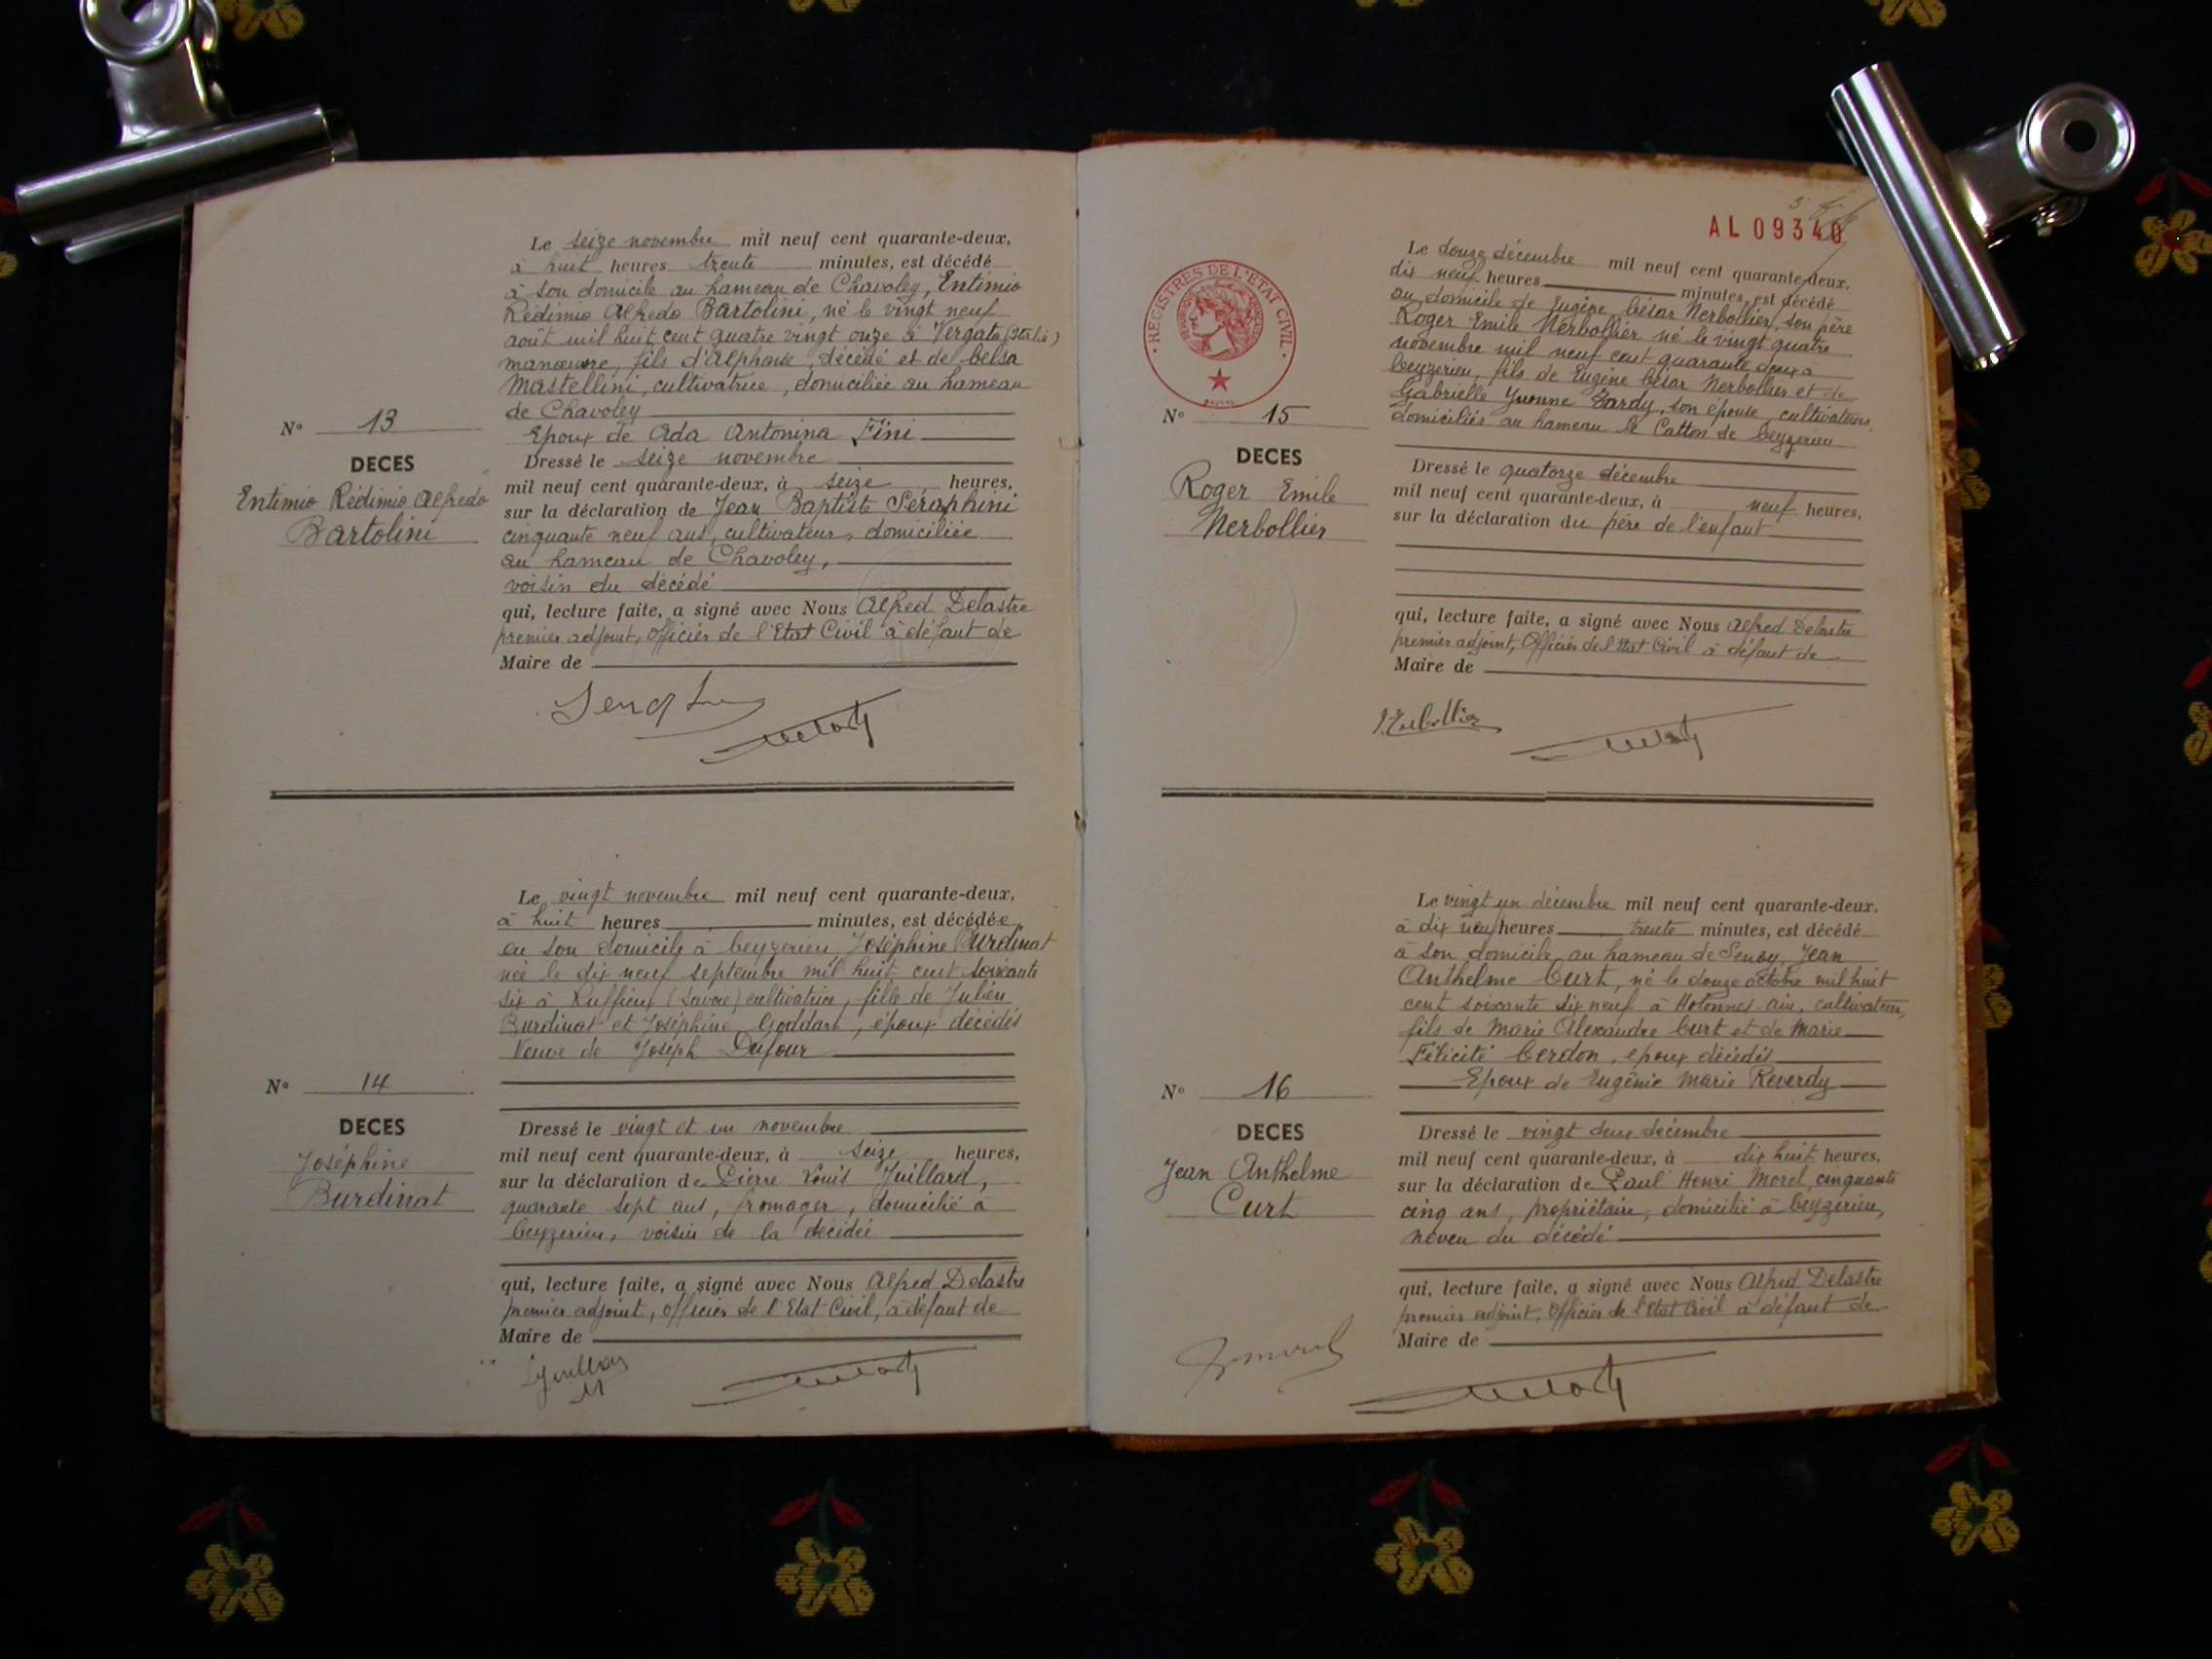 Le seize novembre mil neuf cent quarante-deux,
à huit heures trente minutes, est décédé
à son domicile au hameau de Chavoley, Entimio
Rédimio Alfredo Bartolini, né le vingt neuf
août mil huit cent quatre vingt onze à Vergato (Italie)
manœuvre, fils d'Alphonse, décédé et de Celsa
Mastellini, cultivatrice, domiciliée au hameau
de Chavoley
Epoux de Ada Antonina Fini
N° 13
DECES
Entimio Rédimio Alfredo
Bartolini
Dressé le seize novembre
mil neuf cent quarante-deux, à seize heures,
sur la déclaration de Jean Baptiste Séraphini
cinquante neuf ans, cultivateur, domiciliée
au hameau de Chavoley,
voisin du décédé
qui, lecture faite, a signé avec Nous Alfred Delastre
premier adjoint, Officier de l'Etat Civil à défaut de
Maire de
Le vingt novembre mil neuf cent quarante-deux,
à huit heures minutes, est décédée
en son domicile à Ceyzerieu, Joséphine Burdinat
née le dix neuf septembre mil huit cent soixante
six à Ruffieux (Savoie) cultivatrice, fille de Julien
Burdinat et Joséphine Goddart, époux décédés
Veuve de Joseph Dufour
N° 14
DECES
Joséphine
Burdinat
Dressé le vingt et un novembre
mil neuf cent quarante-deux, à seize heures,
sur la déclaration de Pierre Louis Juillard,
quarante sept ans, fromager, domicilié à
Ceyzerieu, voisin de la décédée
qui, lecture faite, a signé avec Nous Alfred Delastre
premier adjoint, officier de l'Etat Civil, à défaut de
Maire de
AL 09340
REGISTRES DE L'ETAT CIVIL
Le douze décembre mil neuf cent quarante-deux,
dix neuf heures minutes, est décédé
au domicile de Eugène César Nerbollier, son père
Roger Emile Nerbollier né le vingt quatre
novembre mil neuf cent quarante deux à
Ceyzerieu, fils de Eugène César Nerbollier et de
Gabrielle Yvonne Tardy, son épouse, cultivateurs,
domiciliés au hameau le Catton de Ceyzerieu
N° 15
DECES
Roger Emile
Nerbollier
Dressé le quatorze décembre
mil neuf cent quarante-deux, à neuf heures,
sur la déclaration du père de l'enfant
qui, lecture faite, a signé avec Nous Alfred Delastre
premier adjoint, Officier de l'Etat Civil à défaut de
Maire de
Le vingt un décembre mil neuf cent quarante-deux,
à dix neuf heures trente minutes, est décédé
à son domicile au hameau de Senoy, Jean
Anthelme Curt, né le douze octobre mil huit
cent soixante dix neuf à Hotonnes-Ain, cultivateur,
fils de Marie Alexandre Curt et de Marie
Félicité Cerdon, époux décédés
Epoux de Eugénie Marie Reverdy
N° 16
DECES
Jean Anthelme
Curt
Dressé le vingt deux décembre
mil neuf cent quarante-deux, à dix huit heures,
sur la déclaration de Paul Henri Morel, cinquante
cinq ans, propriétaire, domicilié à Ceyzerieu,
neveu du décédé
qui, lecture faite, a signé avec Nous Alfred Delastre
premier adjoint, Officier de l'Etat Civil à défaut de
Maire de